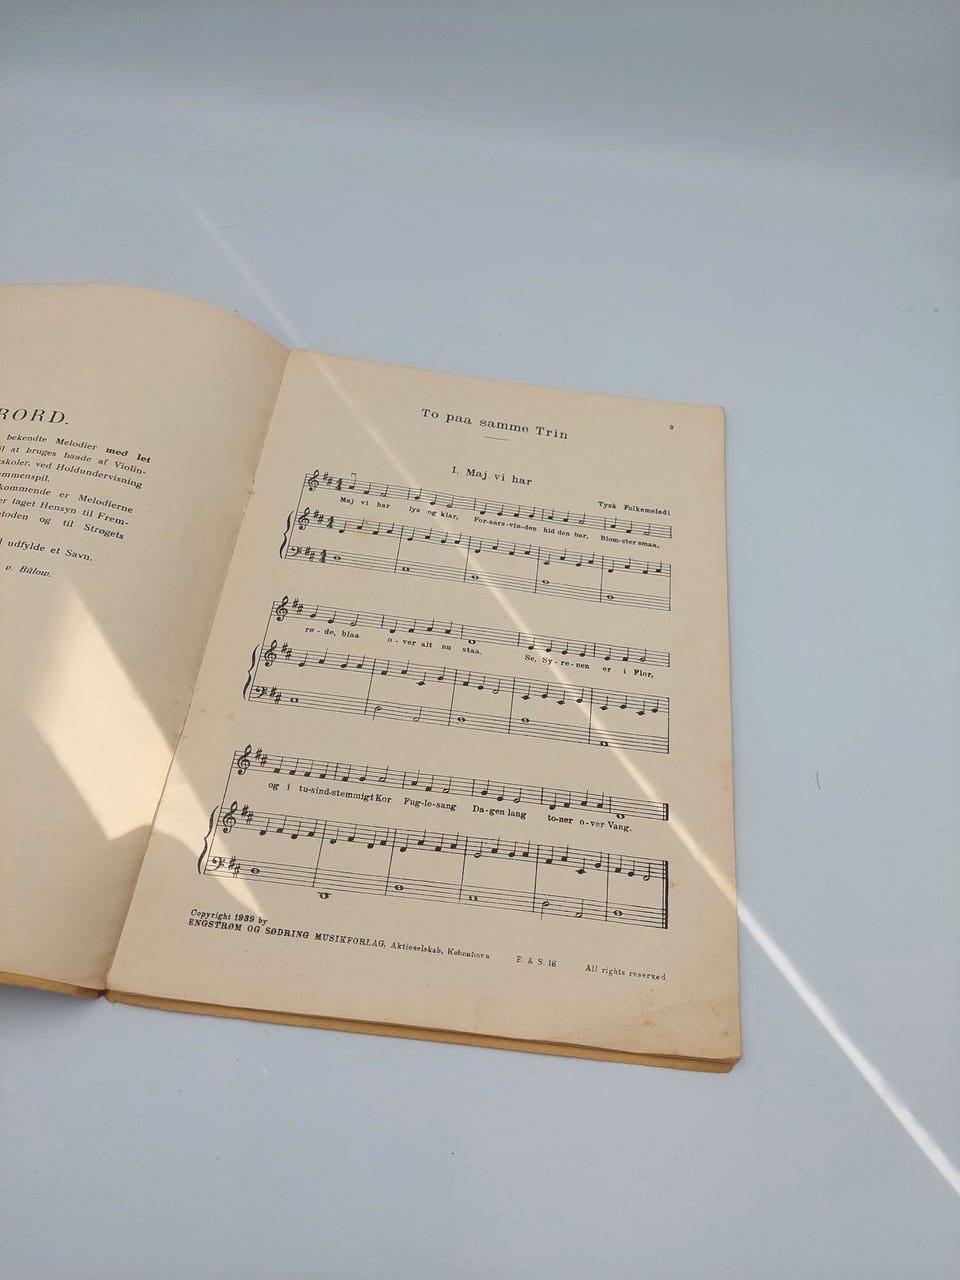 RORD.
bekendte Melodier med let
il at bruges baade af Violin-
skoler, ved Holdundervisning
mmenspil.
kommende er Melodierne
er taget Hensyn til Frem-
toden og til Strøgets
l udfylde et Savn.
v. Bülow.
3
To paa samme Trin
1. Maj vi har
Tysk Folkemelodi
Maj vi har lys og klar, For-aars-vin-den hid den bar, Blom-ster smaa,
rø-de, blaa o-ver alt nu staa. Se, Sy-re-nen er i Flor,
og i tu-sind-stemmigt Kor Fug-le-sang Da-gen lang to-ner o-ver Vang.
Copyright 1939 by
ENGSTRØM OG SØDRING MUSIKFORLAG, Aktieselskab, København E. & S. 16 All rights reserved